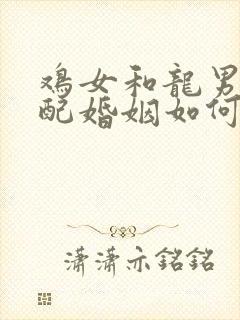 鸡女和龍男
配婚姻如何
潇潇亦銘銘